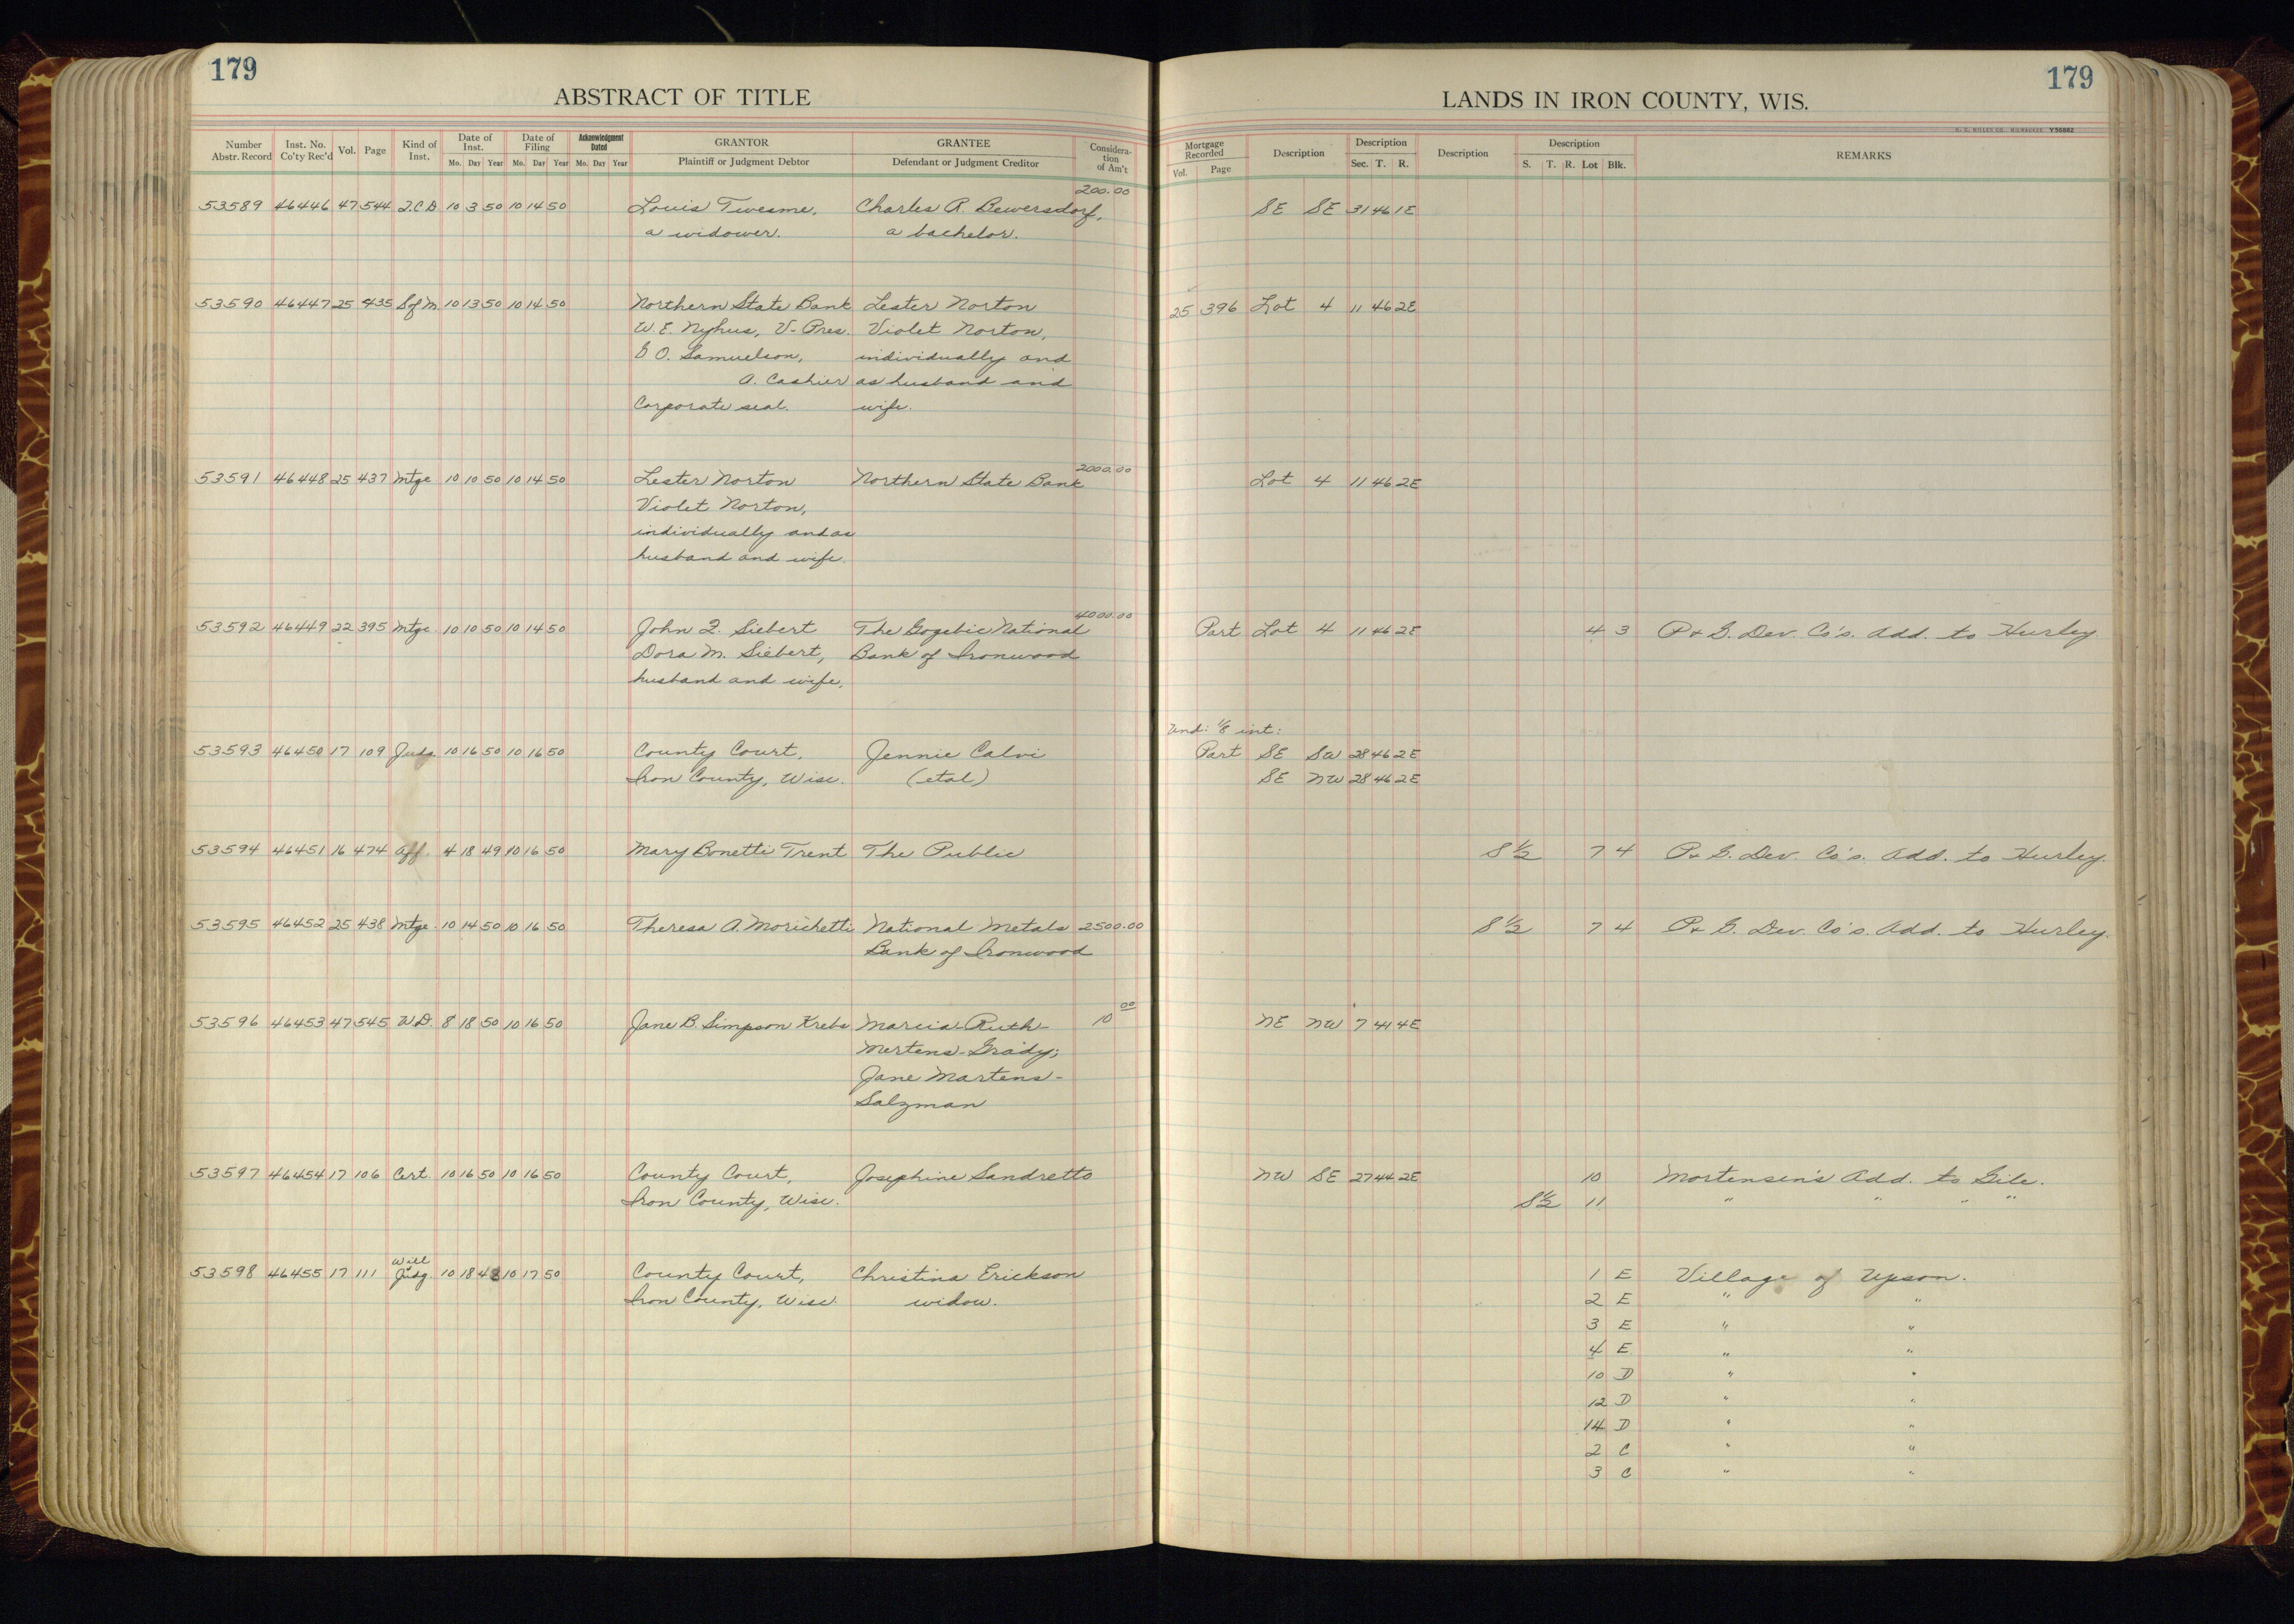 179
ABSTRACT OF TITLE
Number Abstr. Record Inst. No. Co'ty Rec'd Vol. Page Kind of Inst. Date of Inst. Mo. Day Year Date of Filing Mo. Day Year Acknowledgment Dated Mo. Day Year GRANTOR Plaintiff or Judgment Debtor GRANTEE Defendant or Judgment Creditor Considera-tion of Am't
200.00
53589 46446 47 544 Q.C.D 10 3 50 10 14 50 Louis Twesme, Charles R. Bewersdorf,
a widower. a bachelor.
53590 46447 25 435 S of M. 10 13 50 10 14 50 Northern State Bank Lester Norton
W.E. Nyhus, V-Pres. Violet Norton,
G O. Samuelson, individually and
A. Cashier as husband and
Corporate seal. wife.
2000.00
53591 46448 25 437 Mtge 10 10 50 10 14 50 Lester Norton Northern State Bank
Violet Norton,
individually and as
husband and wife.
4000.00
53592 46449 22 395 Mtge. 10 10 50 10 14 50 John Q. Siebert The Gogebic National
Dora M. Siebert, Bank of Ironwood
husband and wife,
53593 46450 17 109 Judg. 10 16 50 10 16 50 County Court, Jennie Calvi
Iron County, Wisc. (etal)
53594 46451 16 474 Aff. 4 18 49 10 16 50 Mary Bonetti Trent The Public
53595 46452 25 438 Mtge. 10 14 50 10 16 50 Theresa A. Morichetti National Metals 2500.00
Bank of Ironwood
53596 46453 47 545 W.D. 8 18 50 10 16 50 Jane B. Simpson Krebs Marcia-Ruth- 10 00
Mertens-Grady;
Jane Martens-
Salzman
53597 46454 17 106 Cert. 10 16 50 10 16 50 County Court, Josephine Sandretto
Iron County, Wisc.
Will
53598 46455 17 111 Judg. 10 18 48 10 17 50 County Court, Christina Erickson
Iron County, Wisc. widow.
179
LANDS IN IRON COUNTY, WIS.
H. C. MILLER CO., MILWAUKEE Y56882
Mortgage Recorded Vol. Page Description Description Sec. T. R. Description Description S. T. R. Lot Blk. REMARKS
SE SE 31 46 1E
25 396 Lot 4 11 46 2E
Lot 4 11 46 2E
Part Lot 4 11 46 2E 4 3 P & G. Dev. Co's. Add. to Hurley
Und: 1/8 int:
Part SE SW 28 46 2E
SE NW 28 46 2E
S 1/2 7 4 P & G. Dev. Co's. Add. to Hurley.
S 1/2 7 4 P & G. Dev. Co's. Add. to Hurley.
NE NW 7 41 4E
NW SE 27 44 2E 10 Mortensen's Add. to Gile.
S 1/2 11 " " " "
1 E Village of Upson.
2 E " "
3 E " "
4 E " "
10 D " "
12 D " "
14 D " "
2 C " "
3 C " "